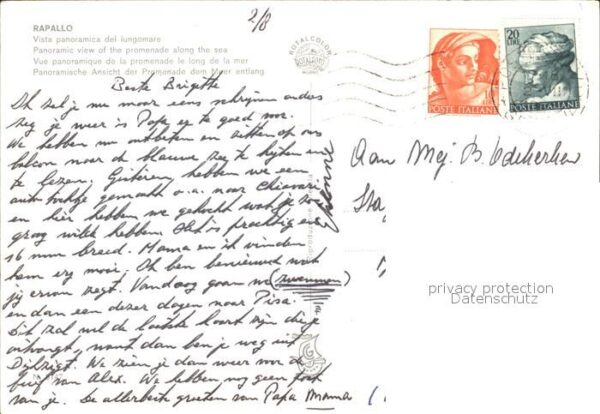 2/8
RAPALLO
Vista panoramica del lungomare
Panoramic view of the promenade along the sea
Vue panoramique de la promenade le long de la mer
Panoramische Ansicht der Promenade dem Meer entlang
ROTALCOLOR
POSTE ITALIANE
20 LIRE
POSTE ITALIANE
Beste Brigitte
Ik zal je nu maar eens schrijven anders
zeg je weer is Papa er te goed voor.
We hebben nu ontbeten en zitten op ons
balcon naar de blauwe zee te kijken en
te lezen. Gisteren hebben we een
auto tochtje gemaakt o.a. naar Chiavari
en hier hebben we gekocht wat je zo
graag wilde hebben. Het is prachtig en
16 mm breed. Mama en ik vinden
hem erg mooi. Ik ben benieuwd wat
jij ervan zegt. Vandaag gaan we (zwemmen)
en dan een dezer dagen naar Pisa.
Dit zal wel de laatste kaart zijn die je
ontvangt, want dan ben je weg uit
Dijkzigt. We zien je dan weer voor de
brief van Alex. We hebben nog geen post
van je. De allerbeste groeten van Papa Mama
Aan Mej. B.
privacy protection
Datenschutz